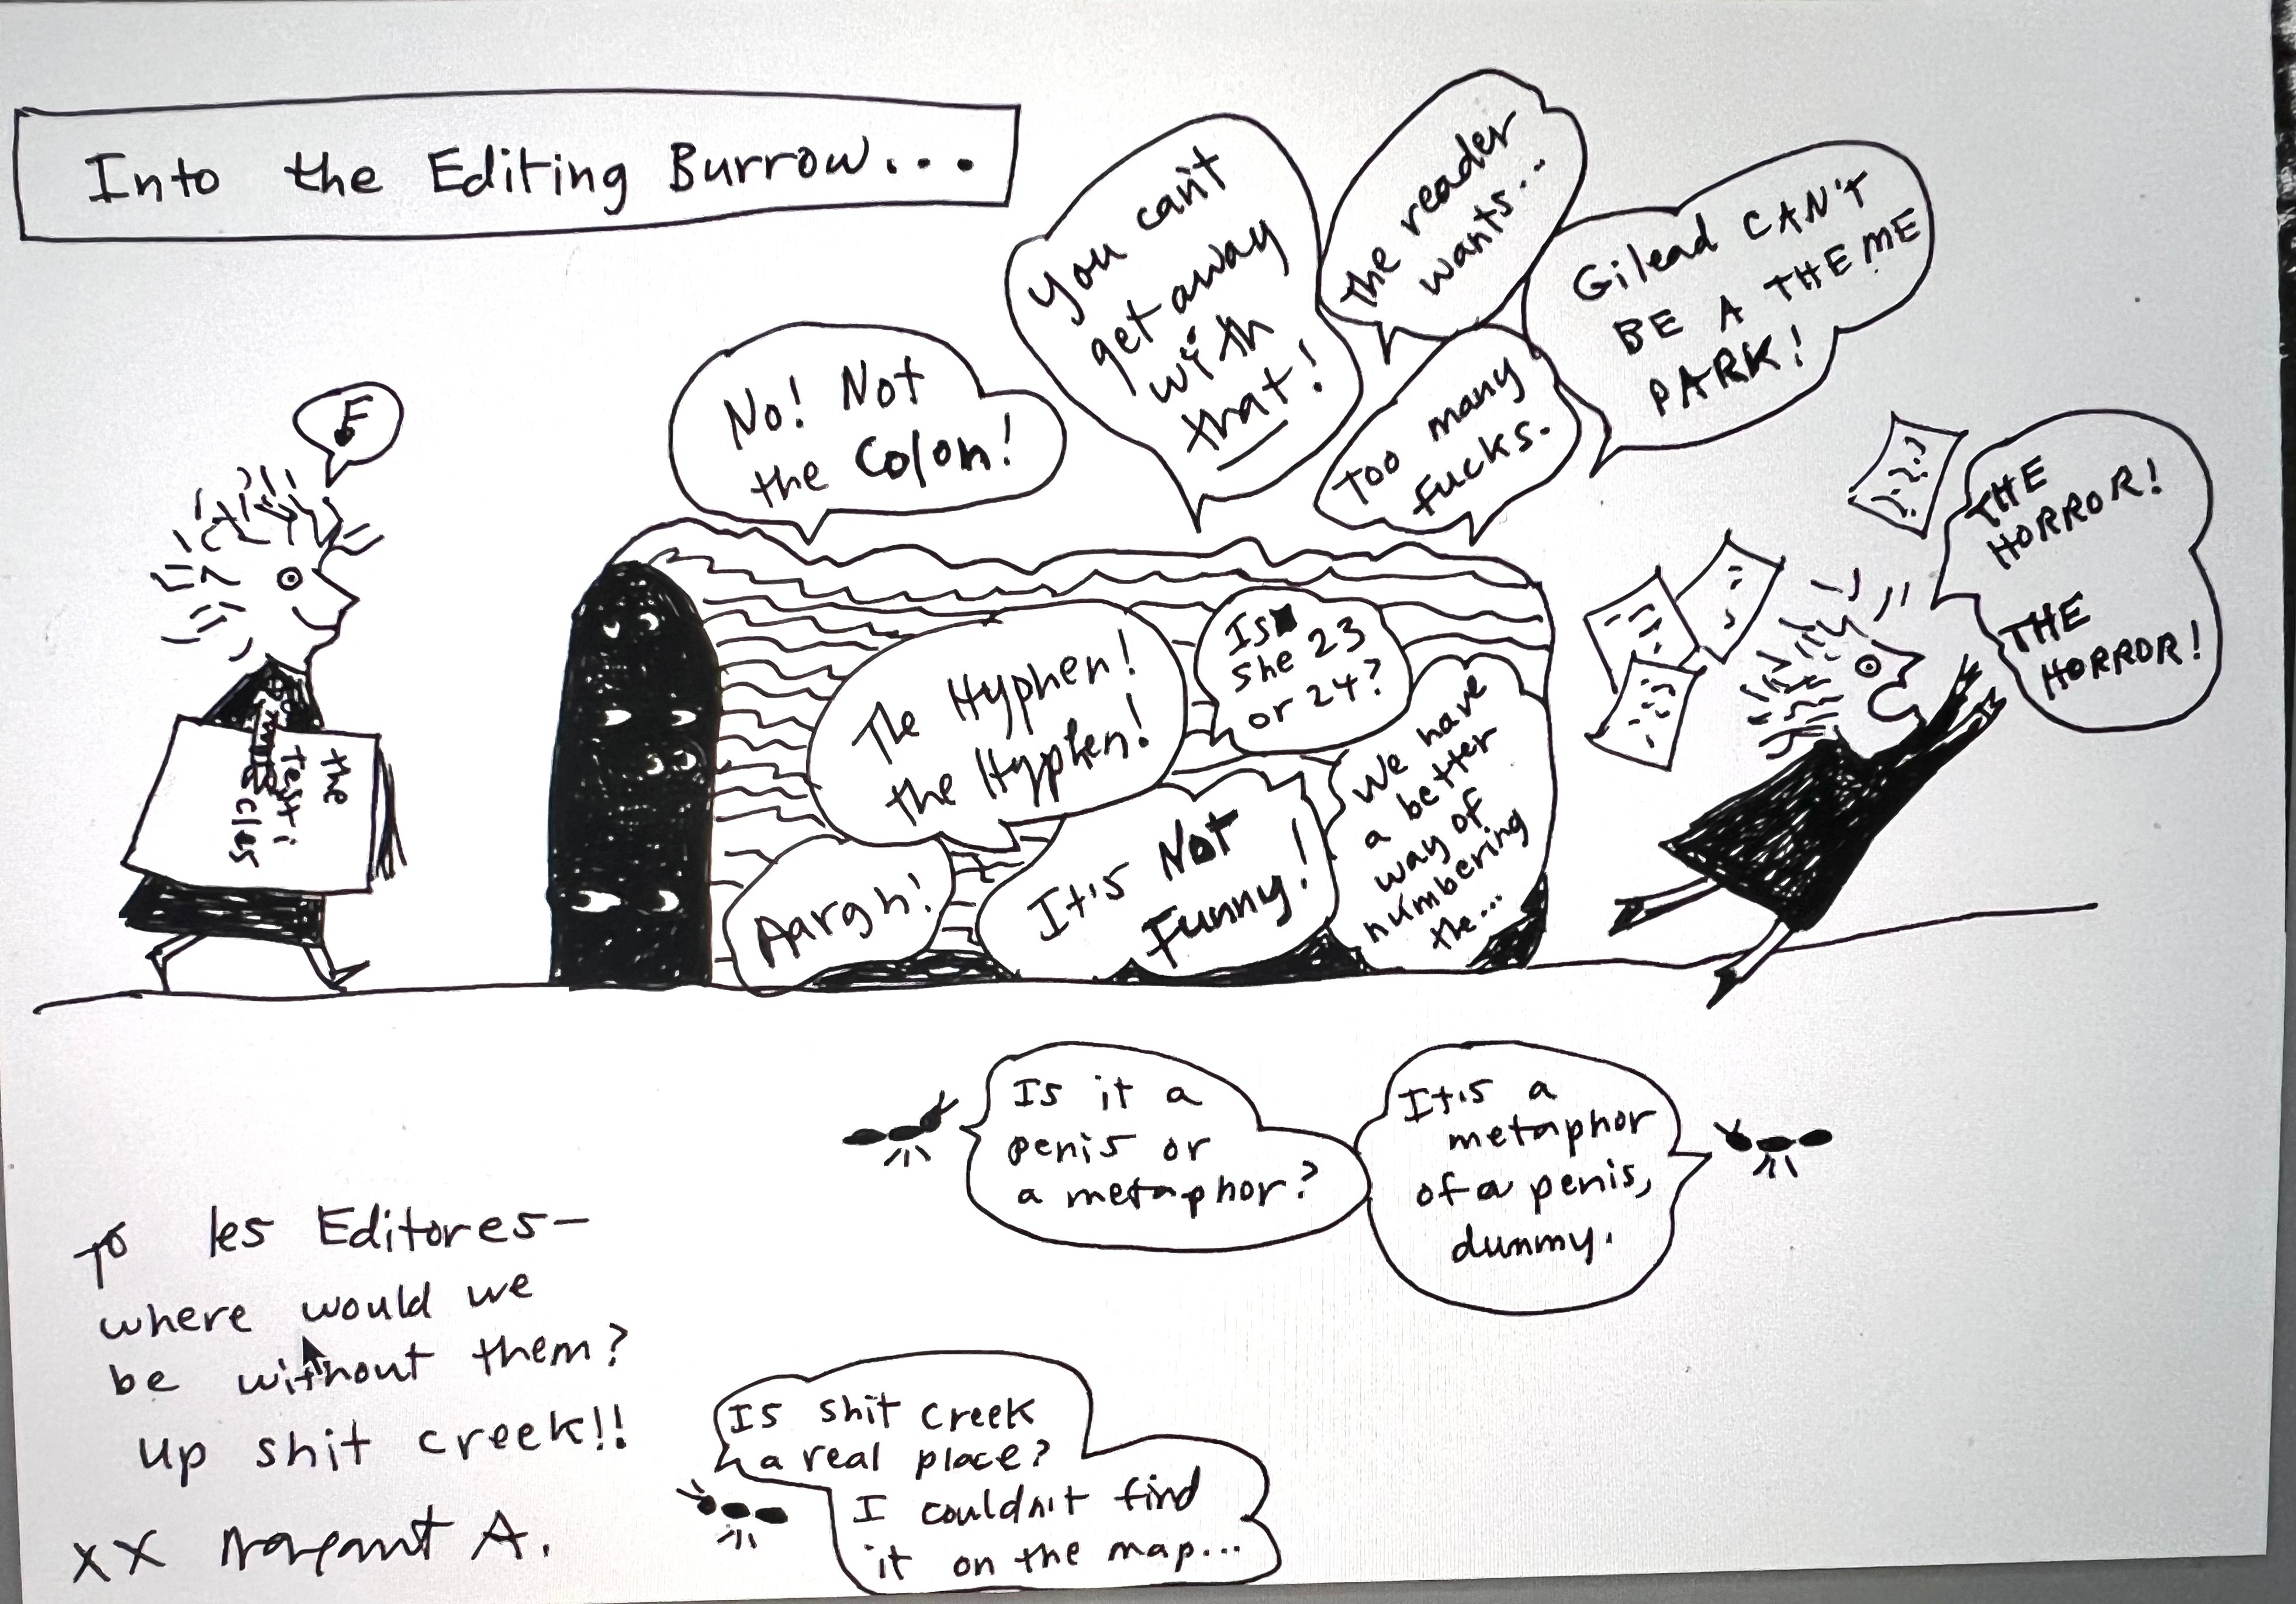 Into the Editing Burrow...
No! Not
the Colon!
You can't
get away
with
that!
The reader
wants...
Gilead CAN'T
BE A THEME
PARK!
Too many
fucks.
THE
HORROR!
THE
HORROR!
the
Testi
cles
The Hyphen!
the Hyphen!
Is
she 23
or 24?
We have
a better
way of
numbering
the...
Aargh!
It's Not
Funny!
Is it a
penis or
a metaphor?
It's a
metaphor
of a penis,
dummy.
To les Editores—
where would we
be without them?
up shit creek!!
xx Margaret A.
Is shit creek
a real place?
I couldn't find
it on the map...